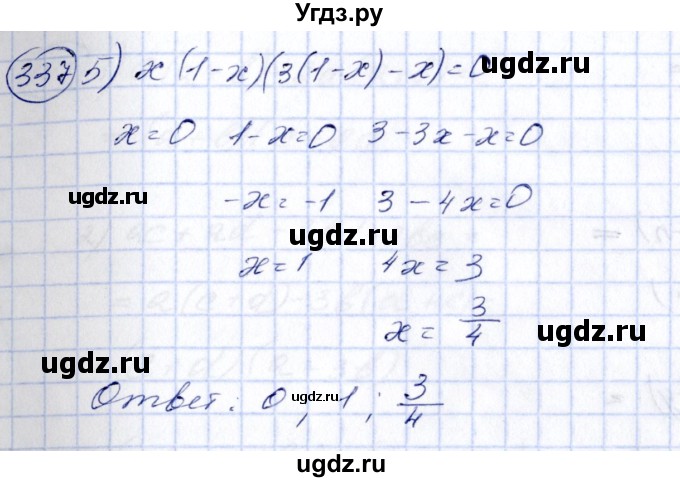 Угдз.ру
337 5) x(1-x)(3(1-x)-x)=0
x=0 1-x=0 3-3x-x=0
-x=-1 3-4x=0
x=1 4x=3
x=3/4
Ответ: 0, 1; 3/4
ugdz.ru
ugdz.ru
ugdz.ru
ugdz.ru
ugdz.ru
ugdz.ru
ugdz.ru
ugdz.ru
ugdz.ru